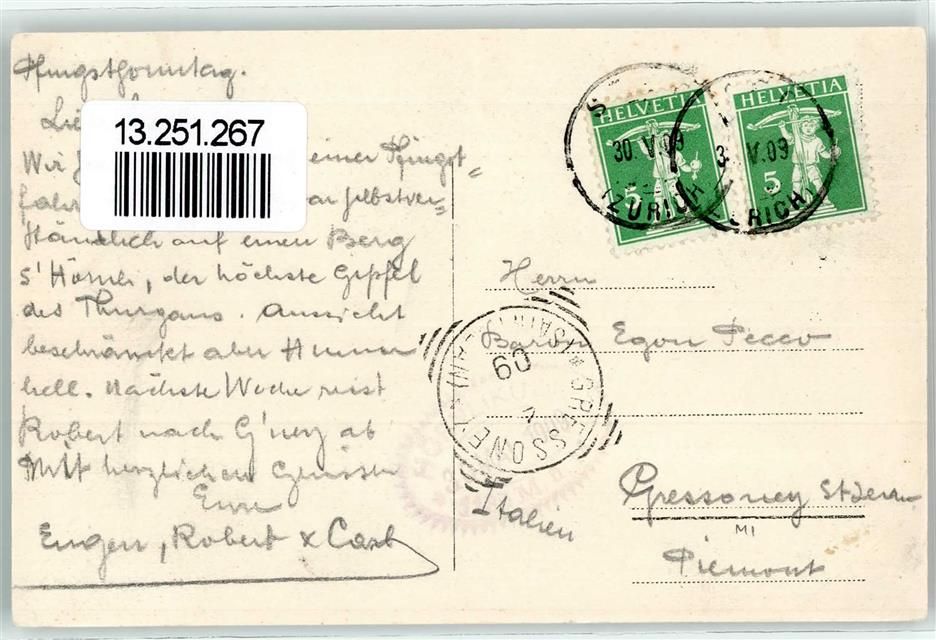 Pfingstsonntag.
13.251.267
Wir einer Pfingst=
selbstver=
ständlich auf einen Berg
s'Hörnli, der höchste Gipfel
des Thurgaus. Aussicht
beschränkt aber Humor
hell. Nächste Woche reist
Robert nach G'ney ab
Mit herzlichen Grüssen
Eure
Eugen, Robert & Carl
HELVETIA
5
HELVETIA
5
30. V. 09
V. 09
(ZÜRICH)
Herrn
Baron Egon Pecco
GRESSONEY
09
Gressoney St Jean
MI
Italien
Piemont